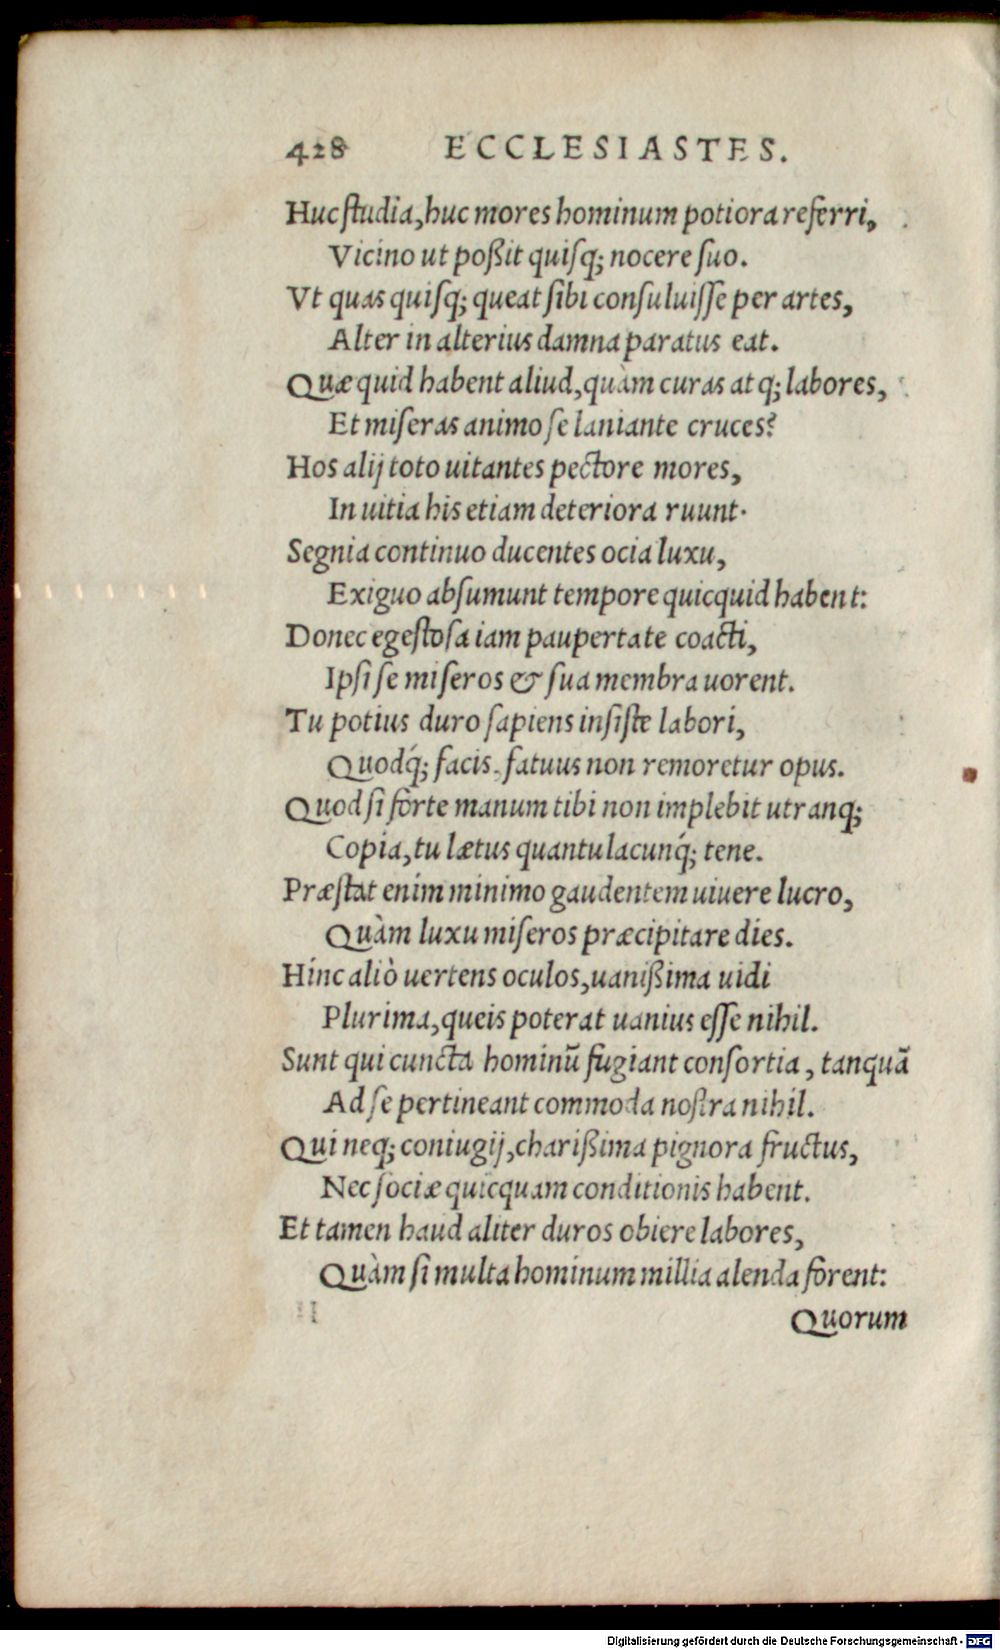 428 ECCLESIASTES.
Huc ſtudia, huc mores hominum potiora referri,
Vicino ut poßit quiſq; nocere ſuo.
Vt quas quiſq; queat ſibi conſuluiſſe per artes,
Alter in alterius damna paratus eat.
Quæ quid habent aliud, quàm curas atq; labores,
Et miſeras animo ſe laniante cruces?
Hos alij toto uitantes pectore mores,
In uitia his etiam deteriora ruunt.
Segnia continuo ducentes ocia luxu,
Exiguo abſumunt tempore quicquid habent:
Donec egeſtoſa iam paupertate coacti,
Ipſi ſe miſeros & ſua membra uorent.
Tu potius duro ſapiens inſiſte labori,
Quodq́; facis, fatuus non remoretur opus.
Quod ſi forte manum tibi non implebit utranq;
Copia, tu lætus quantulacunq́; tene.
Præſtat enim minimo gaudentem uiuere lucro,
Quàm luxu miſeros præcipitare dies.
Hinc aliò uertens oculos, uanißima uidi
Plurima, queis poterat uanius eſſe nihil.
Sunt qui cuncta hominū fugiant conſortia, tanquā
Ad ſe pertineant commoda noſtra nihil.
Qui neq; coniugij, charißima pignora fructus,
Nec ſociæ quicquam conditionis habent.
Et tamen haud aliter duros obiere labores,
Quàm ſi multa hominum millia alenda forent:
Quorum
Digitalisierung gefördert durch die Deutsche Forschungsgemeinschaft - DFG